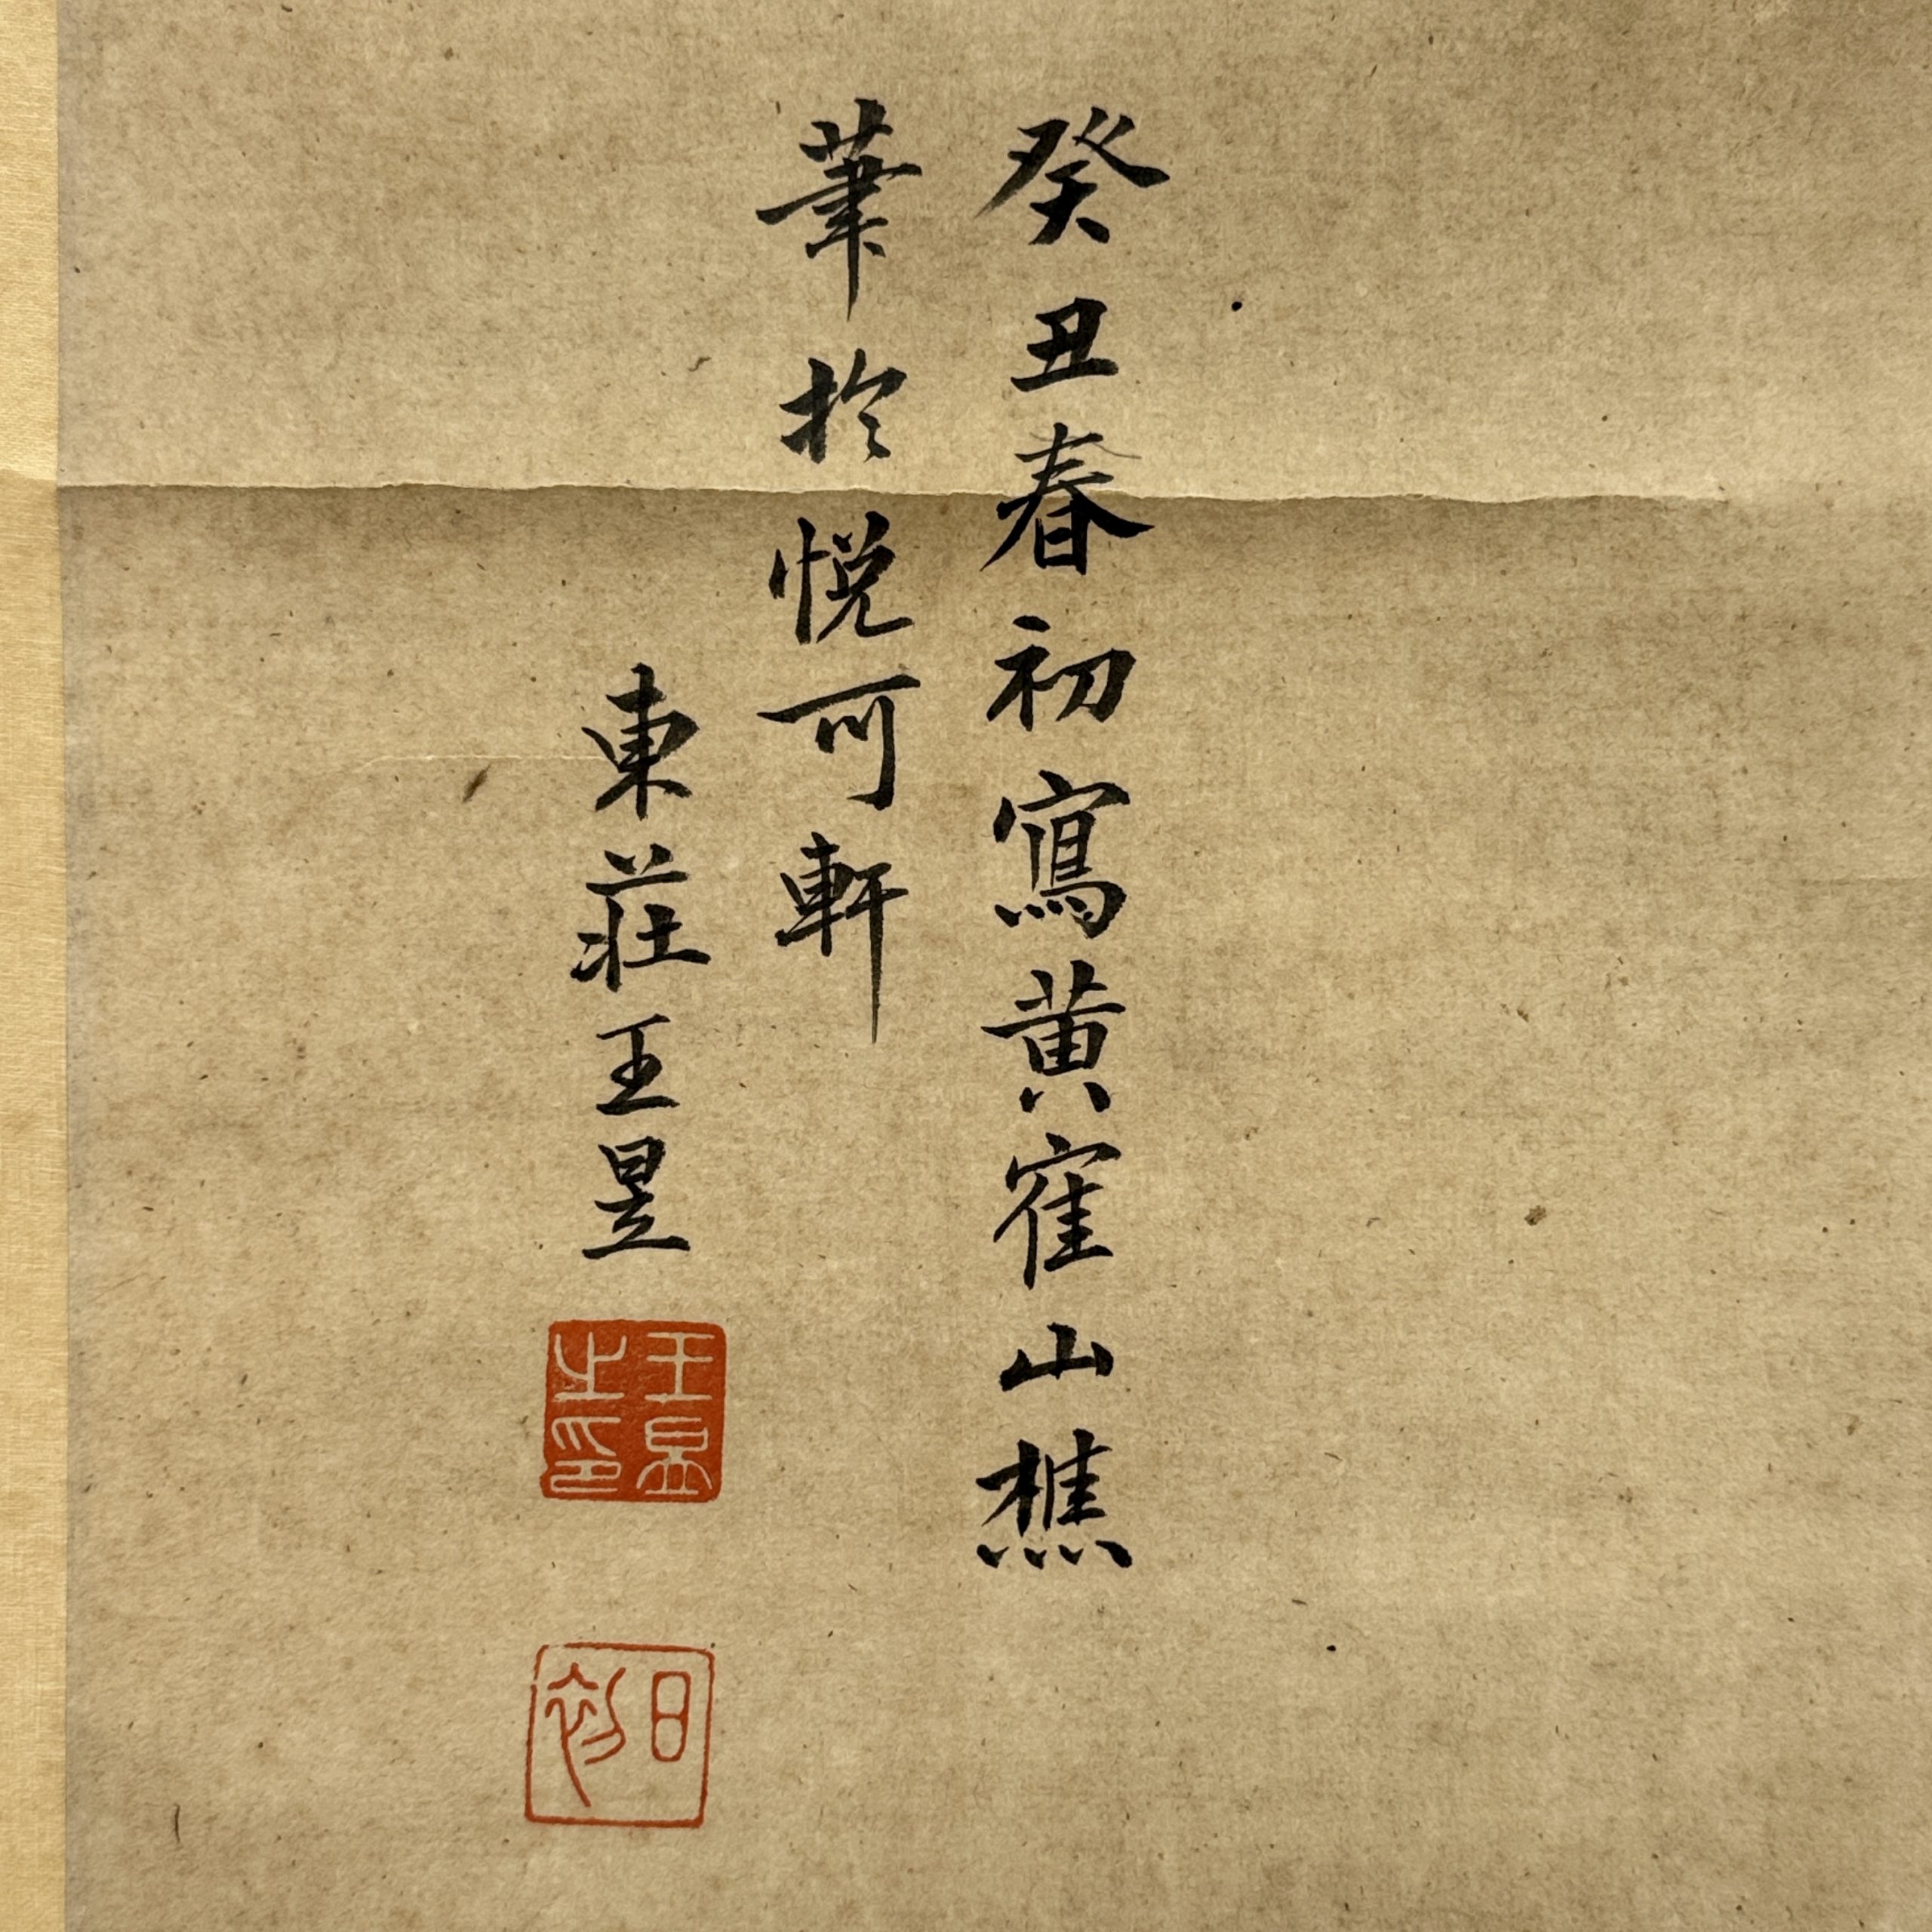 癸丑春初寫黃隺山樵
筆於悦可軒
東莊王昱
王昱之印
日初